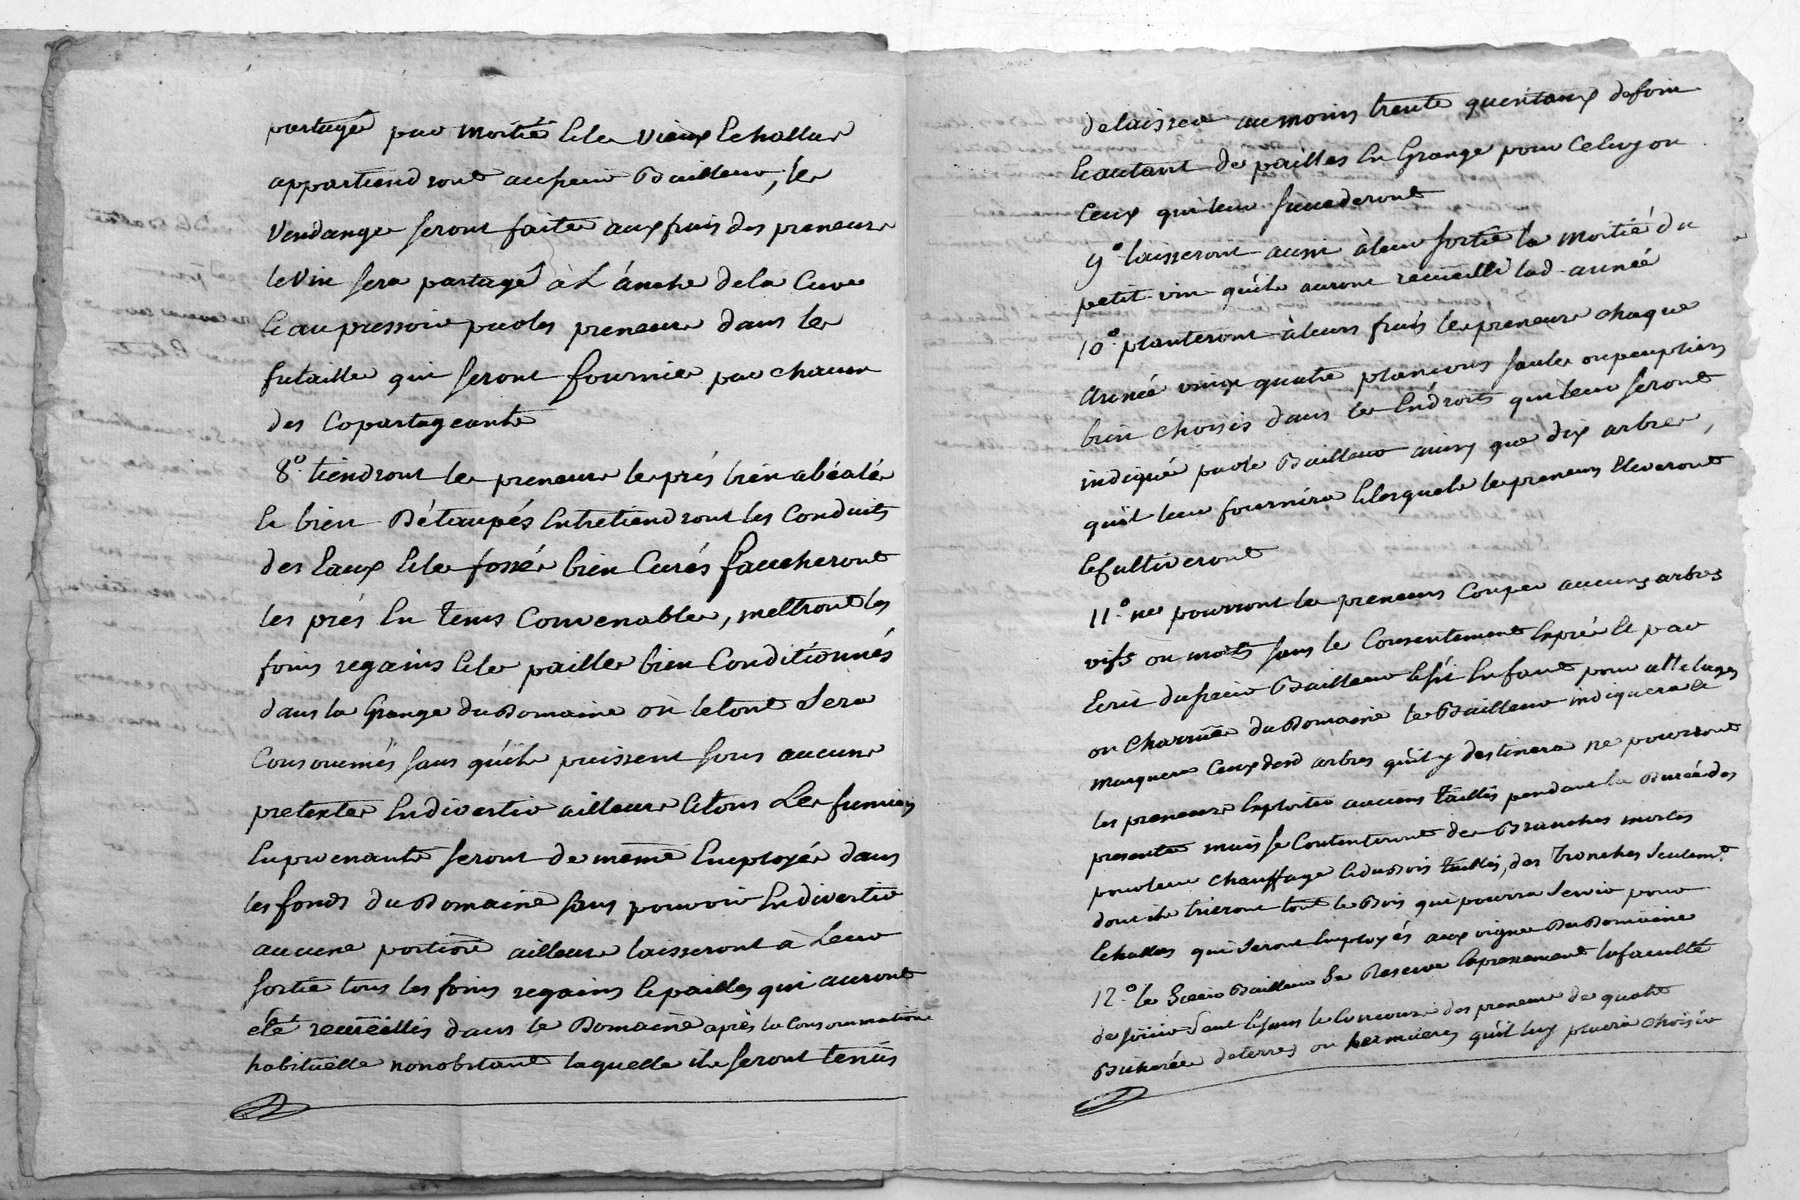 partagé par moitié & les vieux Echallas
appartiendront au sieur Bailleur, les
Vendanges seront faites aux frais des preneurs
le Vin sera partagé à L'anche de la Cuve
& au pressoir par les preneurs dans les
futailles qui seront fournies par chacun
des Copartageants
8.° tiendront les preneurs les prés bien abéalés
& bien Détaupés Entretiendront les Conduits
des Eaux & les fossés bien Curés faucheront
les prés En tems Convenables, mettront les
foins regains & les pailles bien Conditionnés
dans la Grange du Domaine où le tout sera
Consoumés sans qu'ils puissent sous aucuns
pretextes En divertir ailleurs & tous Les fumiers
En provenants seront de même Employés dans
les fonds du Domaine sans pouvoir En divertir
aucune portion ailleurs laisseront à Leur
sortie tous les foins regains & pailles qui auront
été recueillis dans le Domaine après la Consommation
habituelle nonobstant laquelle ils seront tenus
delaisser au moins trente quentaux de foin
& autant de pailles En Grange pour Celuy ou
Ceux qui leur succederont
9° laisseront aussi à leur sortie la moitié du
petit vin qu'ils auront recueilli lad. année
10.° planteront à leurs frais les preneurs chaque
Année vingt quatre plançons saules ou peupliers
bien choisis dans les Endroits qui leur seront
indiqué par le Bailleur ainsy que dix arbres,
qu'il leur fournira & lesquels les preneurs Eleveront
& Cultiveront
11.° ne pourront les preneurs Couper aucuns arbres
vifs ou morts sans le Consentement Exprès & par
Ecrit du sieur Bailleur & s'il En faut pour attelages
ou Charrües du Domaine le Bailleur indiquera &
marquera Ceux desd arbres qu'il y destinera ne pourront
les preneurs Exploiter aucuns taillis pendant la Durée des
presentes mais se Contenteront des Branches mortes
pour leur chauffage & du Bois taillis, des tronches seulemt.
dont ils trieront tout le Bois qui pourra servir pour
Echallas qui seront Employés aux vignes du Domaine
12.° le Sieur Bailleur se Reserve Expressement la faculté
de jouir seul & sans le Concours des preneurs de quatre
Bicherées de terres ou hermieres qu'il luy plaira choisir